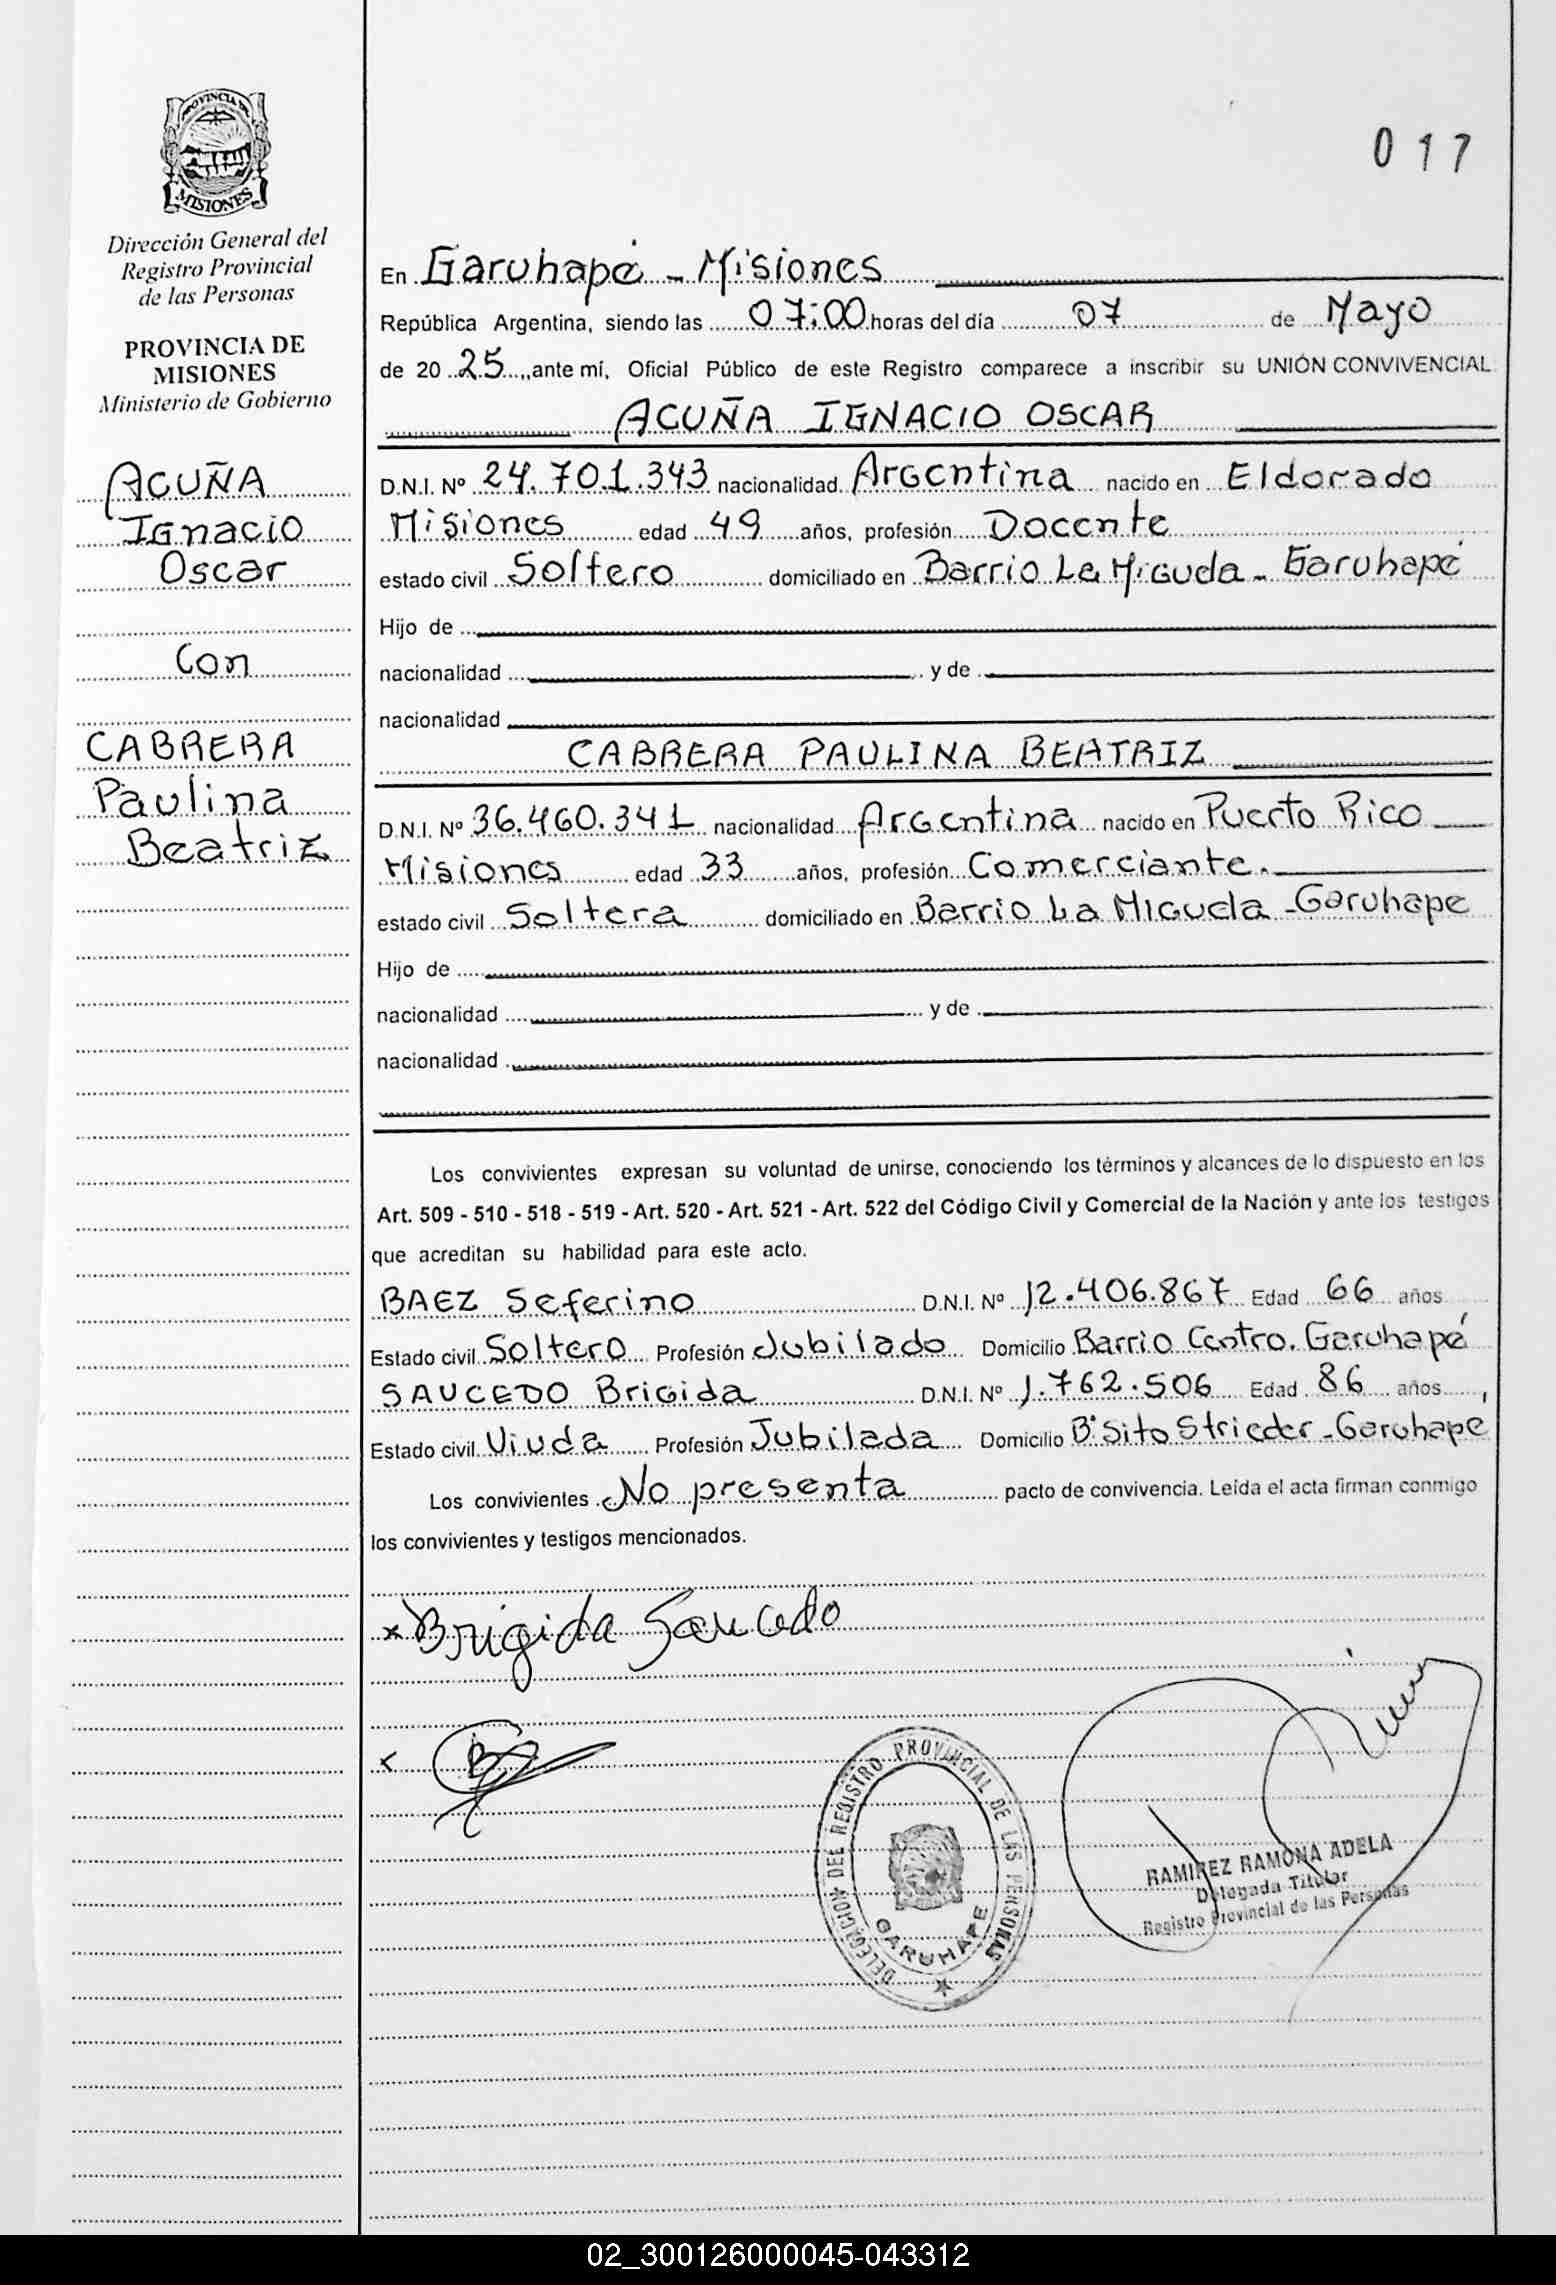 PROVINCIA DE
MISIONES
Dirección General del
Registro Provincial
de las Personas
PROVINCIA DE
MISIONES
Ministerio de Gobierno
ACUÑA
Ignacio
Oscar
Con
CABRERA
Paulina
Beatriz
017
En Garuhapé - Misiones
República Argentina, siendo las 07:00 horas del día 07 de Mayo
de 20 25, ante mí, Oficial Público de este Registro comparece a inscribir su UNIÓN CONVIVENCIAL
ACUÑA IGNACIO OSCAR
D.N.I. Nº 24.701.343 nacionalidad Argentina nacido en Eldorado
Misiones edad 49 años, profesión Docente
estado civil Soltero domiciliado en Barrio La Miguela - Garuhapé
Hijo de
nacionalidad y de
nacionalidad
CABRERA PAULINA BEATRIZ
D.N.I. Nº 36.460.341 nacionalidad Argentina nacido en Puerto Rico
Misiones edad 33 años, profesión Comerciante.
estado civil Soltera domiciliado en Barrio La Miguela - Garuhape
Hijo de
nacionalidad y de
nacionalidad
Los convivientes expresan su voluntad de unirse, conociendo los términos y alcances de lo dispuesto en los
Art. 509 - 510 - 518 - 519 - Art. 520 - Art. 521 - Art. 522 del Código Civil y Comercial de la Nación y ante los testigos
que acreditan su habilidad para este acto.
BAEZ Seferino D.N.I. Nº 12.406.867 Edad 66 años
Estado civil Soltero Profesión Jubilado Domicilio Barrio Centro. Garuhapé
SAUCEDO Brigida D.N.I. Nº 1.762.506 Edad 86 años
Estado civil Viuda Profesión Jubilada Domicilio Bº Sito Strieder - Garuhapé
Los convivientes No presenta pacto de convivencia. Leída el acta firman conmigo
los convivientes y testigos mencionados.
x Brigida Saucedo
DELEGACION DEL REGISTRO PROVINCIAL DE LAS PERSONAS
GARUHAPE
RAMIREZ RAMONA ADELA
Delegada Titular
Registro Provincial de las Personas
02_300126000045-043312